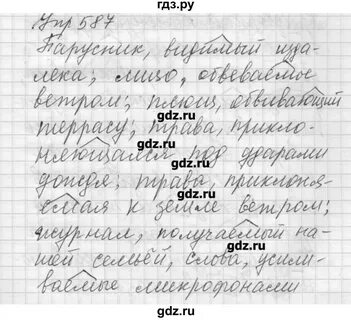 Упр 587
Парусник, видимый изда-
лека; лицо, обвеваемое
ветром; плющ, обвивающий
террасу; трава, прикло-
няющаяся под ударами
дождя; трава, приклоня-
емая к земле ветром;
журнал, получаемый на-
шей семьёй, слова, усили-
ваемые микрофонами
gdz.ru
gdz.ru
gdz.ru
gdz.ru
gdz.ru
gdz.ru
gdz.ru
gdz.ru
gdz.ru